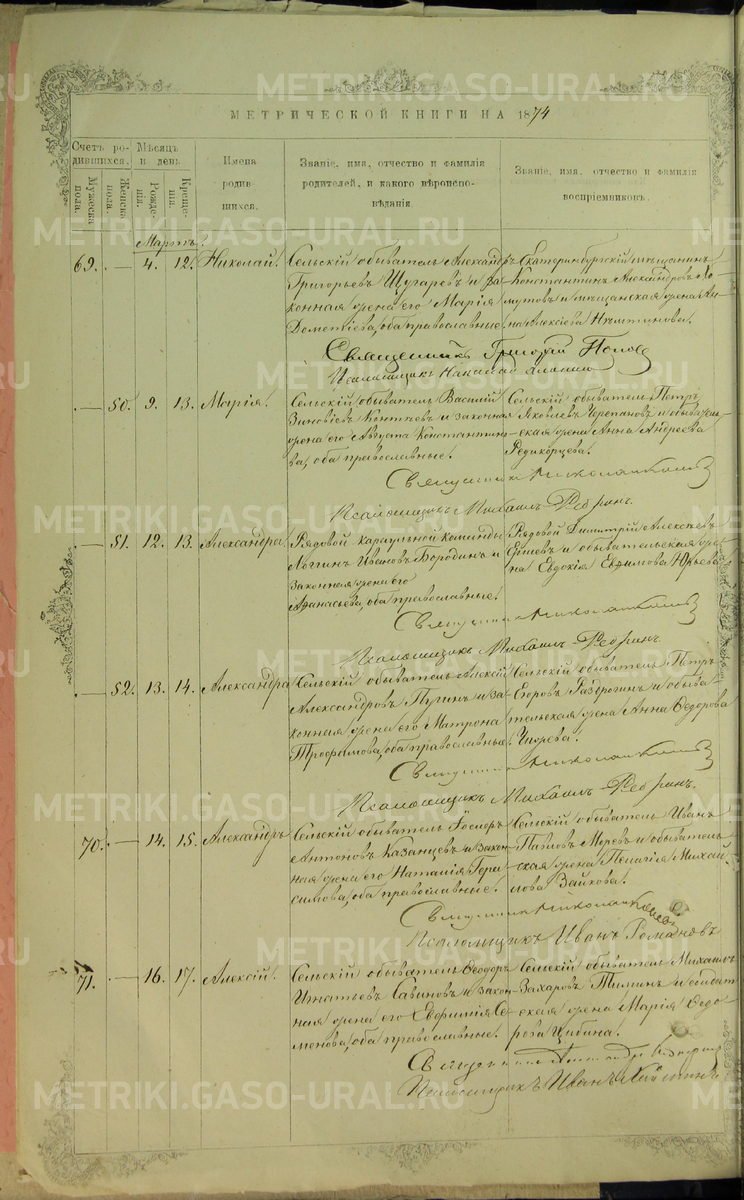 МЕТРИЧЕСКОЙ КНИГИ НА 1874
Счетъ родившихся.
Мужеска пола.
Женска пола.
Мѣсяцъ и день.
Рожденія.
Крещенія.
Имена родившихся.
Званіе, имя, отчество и фамилія родителей, и какого вѣроисповѣданія.
Званіе, имя, отчество и фамилія воспріемниковъ.
Мартъ.
69. — 4. 12. Николай.
Сельскій обыватель Александръ
Григорьевъ Щугаревъ и за-
конная жена его Марія
Дометіева, оба православные.
Екатеринбургскій мѣщанинъ
Константинъ Александровъ
и мѣщанская жена Ан-
на Алексіева
Священникъ Григорій Поповъ
Псаломщикъ
— 50. 9. 13. Марія.
Сельскій обыватель Василій
Зиновіевъ и законная
жена его Августа Константино-
ва, оба православные.
Сельскій обыватель Петръ
Яковлевъ Черепановъ и обыватель-
ская жена Анна Андреева
Редикорцева.
Священникъ
Псаломщикъ Михаилъ
— 51. 12. 13. Александра.
Рядовой караульной команды
Логгинъ Ивановъ Бородинъ и
законная жена его
Аѳанасьева, оба православные.
Рядовой Димитрій Алексѣевъ
и обывательская же-
на Евдокія Евфимова Юрьева
Священникъ
Псаломщикъ Михаилъ
— 52. 13. 14. Александра
Сельскій обыватель Алексій
Александровъ Пугинъ и за-
конная жена его Матрона
Трофимова, оба православные.
Сельскій обыватель Петръ
Егоровъ и обыва-
тельская жена Анна Ѳедорова
Священникъ
Псаломщикъ Михаилъ
70. — 14. 15. Александръ
Сельскій обыватель
Антоновъ Казанцевъ и закон-
ная жена его Наталія Гера-
симова, оба православные.
Сельскій обыватель Иванъ
Павловъ и обыватель-
ская жена Пелагія Михай-
лова Зайкова.
Священникъ
Псаломщикъ Иванъ Романовъ
71. — 16. 17. Алексій.
Сельскій обыватель Ѳеодоръ
Игнатьевъ Савиновъ и закон-
ная жена его Евфимія Се-
менова, оба православные.
Сельскій обыватель Михаилъ
Захаровъ и солдат-
ская жена Марія Ѳедо-
рова
Священникъ
Псаломщикъ Иванъ
METRIKI.GASO-URAL.RU